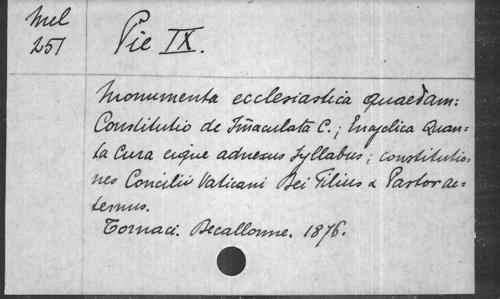 Mel
251
Pie IX.
Monumenta ecclesiastica quaedam:
Constitutio de Im̃aculata C.; Encyclica Quan=
ta Cura eique adnexus Syllabus; constitutio=
nes Concilii Vaticani Dei Filius & Pastor ae=
ternus.
Tornaci. Becallonne. 1876.